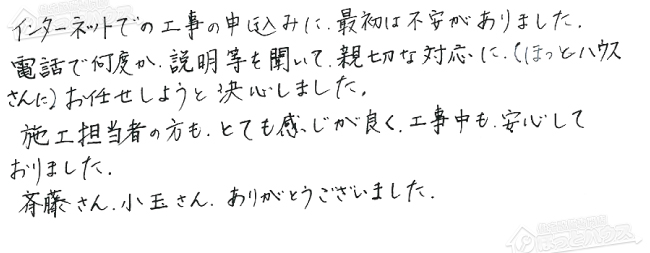 インターネットでの工事の申し込みに、最初は不安がありました。
電話で何度か、説明等を聞いて、親切な対応に、(ほっとハウス
さんに)お任せしようと決心しました。
施工担当者の方も、とても感じが良く、工事中も、安心して
おりました。
斉藤さん、小玉さん、ありがとうございました。